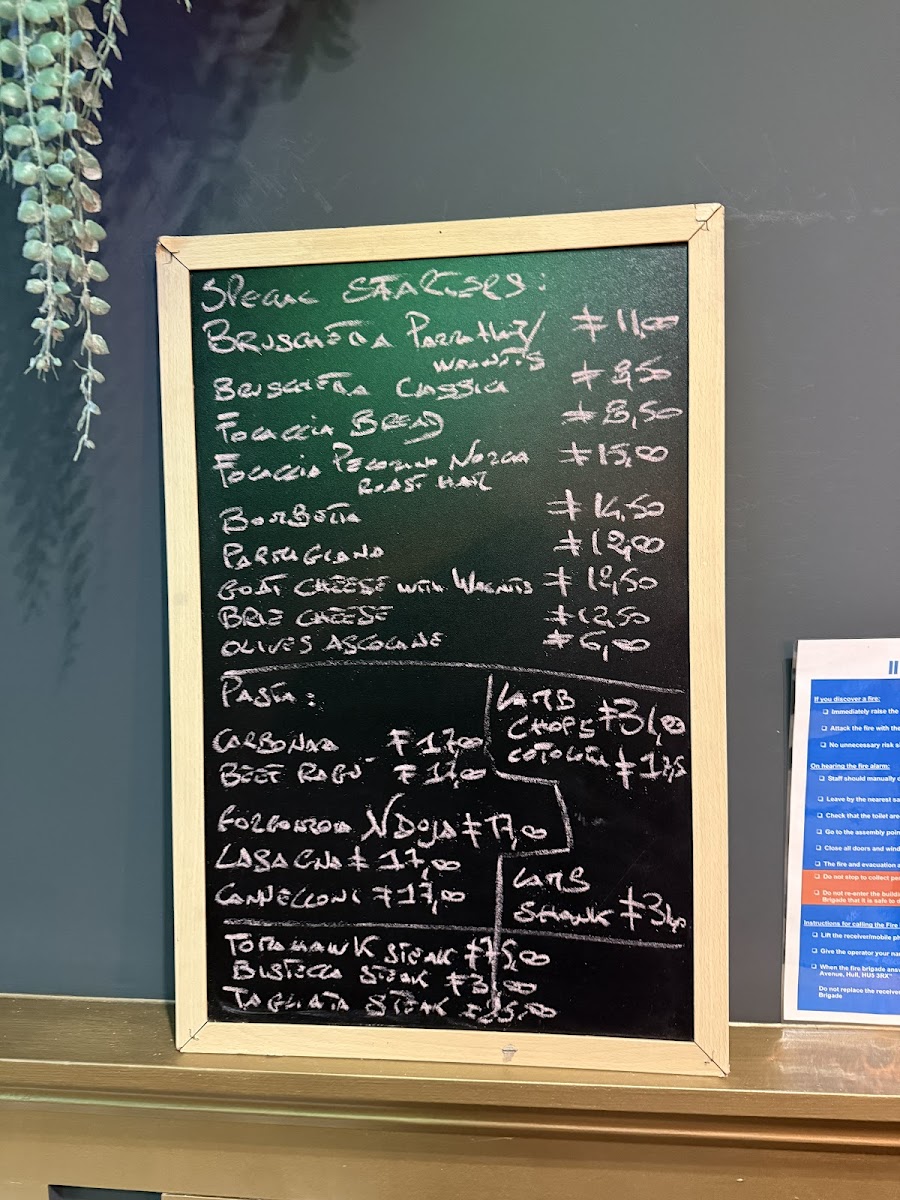 SPECIAL STARTERS:
BRUSCHETTA PARMA HAM/ £11,00
WALNUTS
BRUSCHETTA CLASSICA £8,50
FOCACCIA BREAD £8,50
FOCACCIA PECORINO NORCIA £15,00
ROAST HAM
£14,50
PARMIGIANA £12,00
GOAT CHEESE WITH WALNUTS £12,50
BRIE CHEESE £12,50
OLIVES ASCOLANE £6,00
PASTA:
CARBONARA £17,00
BEEF RAGU' £17,00
GORGONZOLA NDUJA £17,00
LASAGNA £17,00
CANNELLONI £17,00
LAMB
CHOPS £31,00
LAMB
SHANK
TOMAHAWK STEAK £75,00
BISTECCA STEAK
TAGLIATA STEAK £35,00
If you discover a fire:
Immediately raise the
Attack the fire with the
No unnecessary risk
On hearing the fire alarm:
Staff should manually
Leave by the nearest
Check that the toilet
Go to the assembly
Close all doors and
The fire and evacuation
Do not stop to collect
Do not re-enter the
Brigade that it is safe to
Instructions for calling the Fire
Lift the receiver/mobile
Give the operator your
When the fire brigade
Avenue, Hull, HU5 3RX"
Do not replace the
Brigade